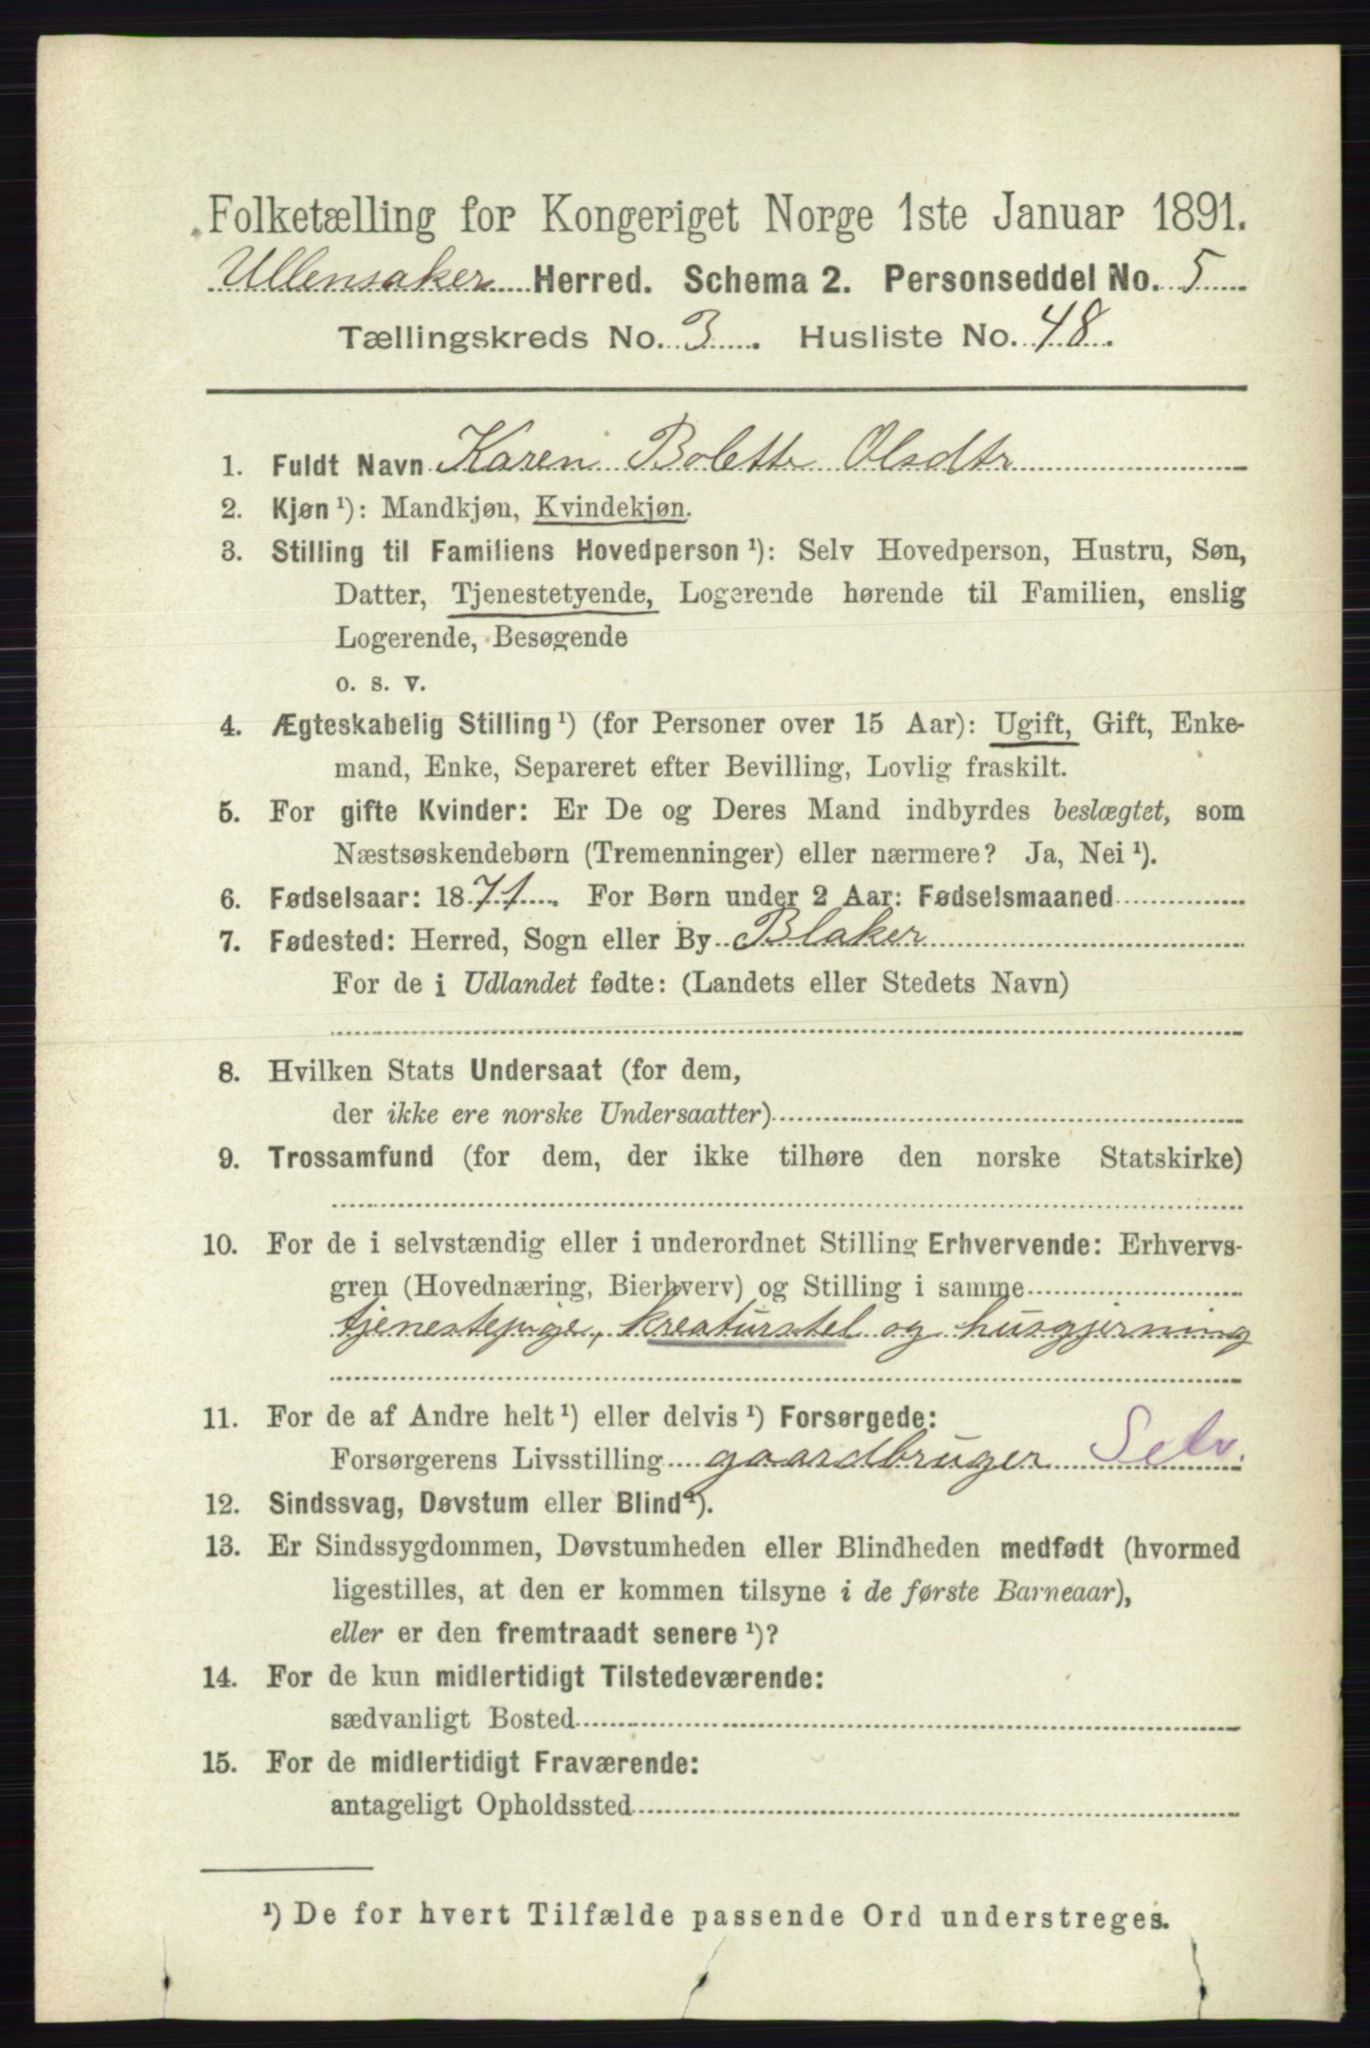 Folketælling for Kongeriget Norge 1ste Januar 1891.
Ullensaker Herred. Schema 2. Personseddel No. 5
Tællingskreds No. 3. Husliste No. 48.
1. Fuldt Navn Karen Bolette Olsdtr
2. Kjøn ¹): Mandkjøn, Kvindekjøn.
3. Stilling til Familiens Hovedperson ¹): Selv Hovedperson, Hustru, Søn,
Datter, Tjenestetyende, Logerende hørende til Familien, enslig
Logerende, Besøgende
o. s. v.
4. Ægteskabelig Stilling ¹) (for Personer over 15 Aar): Ugift, Gift, Enke-
mand, Enke, Separeret efter Bevilling, Lovlig fraskilt.
5. For gifte Kvinder: Er De og Deres Mand indbyrdes beslægtet, som
Næstsøskendebørn (Tremenninger) eller nærmere? Ja, Nei ¹).
6. Fødselsaar: 1871. For Børn under 2 Aar: Fødselsmaaned
7. Fødested: Herred, Sogn eller By Blaker
For de i Udlandet fødte: (Landets eller Stedets Navn)
8. Hvilken Stats Undersaat (for dem,
der ikke ere norske Undersaatter)
9. Trossamfund (for dem, der ikke tilhøre den norske Statskirke)
10. For de i selvstændig eller i underordnet Stilling Erhvervende: Erhvervs-
gren (Hovednæring, Bierhverv) og Stilling i samme
tjenestepige, kreaturstel og husgjerning
11. For de af Andre helt ¹) eller delvis ¹) Forsørgede:
Forsørgerens Livsstilling gaardbruger Selv.
12. Sindssvag, Døvstum eller Blind ¹).
13. Er Sindssygdommen, Døvstumheden eller Blindheden medfødt (hvormed
ligestilles, at den er kommen tilsyne i de første Barneaar),
eller er den fremtraadt senere ¹)?
14. For de kun midlertidigt Tilstedeværende:
sædvanligt Bosted
15. For de midlertidigt Fraværende:
antageligt Opholdssted
¹) De for hvert Tilfælde passende Ord understreges.